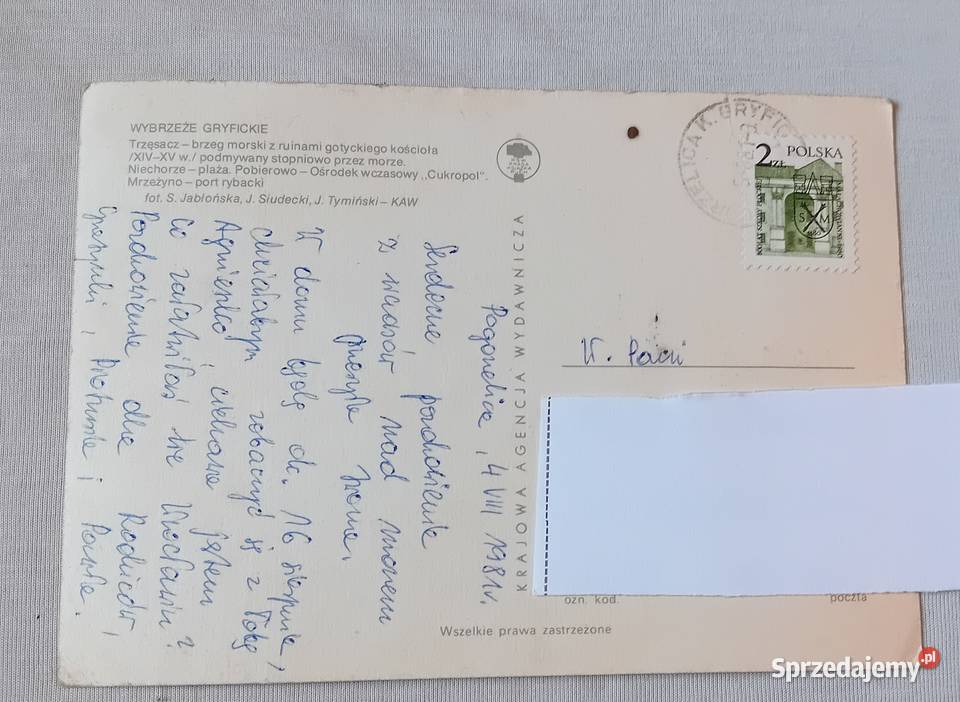 WYBRZEŻE GRYFICKIE
Trzęsacz – brzeg morski z ruinami gotyckiego kościoła
/XIV–XV w./ podmywany stopniowo przez morze.
Niechorze – plaża. Pobierowo – Ośrodek wczasowy ,,Cukropol".
Mrzeżyno – port rybacki
fot. S. Jabłońska, J. Siudecki, J. Tymiński – KAW
KRAJOWA AGENCJA WYDAWNICZA
Pogorzelica, 4 VIII 1981r.
Serdeczne pozdrowienia
z wczasów nad morzem
przesyła Iwona.
W domu będę ok. 16 sierpnia,
chciałabym zobaczyć się z Tobą
Agnieszko i ciekawa jestem
co załatwiłaś we Wrocławiu?
Pozdrowienia dla Rodziców,
Grzesynki i Pawła.
POGORZELICA K. GRYFIC
2 ZŁ POLSKA
S M
W. Pani
ozn. kod.
poczta
Wszelkie prawa zastrzeżone
Sprzedajemy.pl